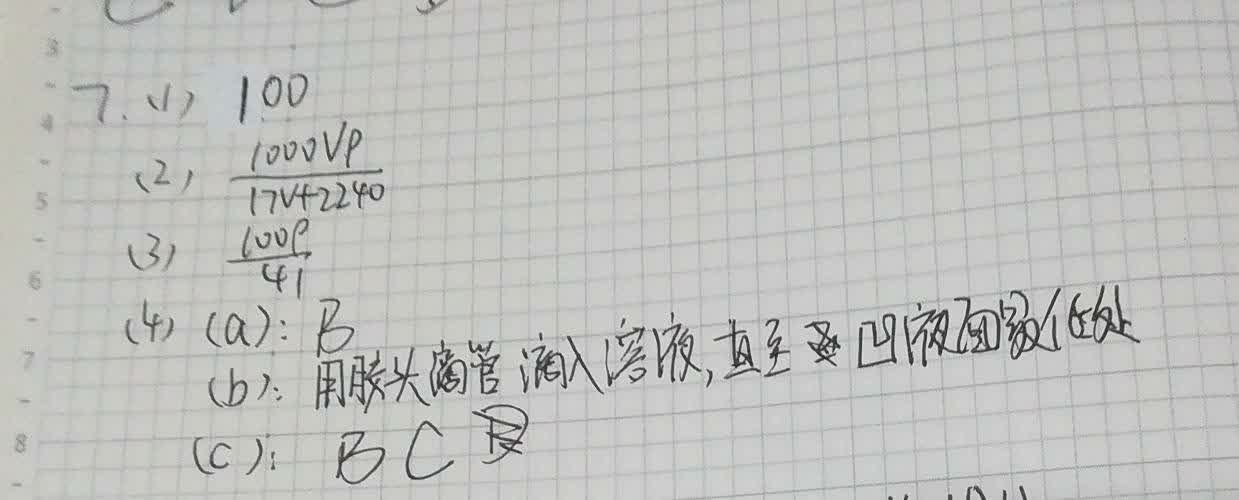 3
4
5
6
7
8
7. (1) 100
(2) 1000Vρ/17V+2240
(3) 100ρ/41
(4) (a): B
(b): 用胶头滴管滴入溶液,直至凹液面最低处
(c): B C